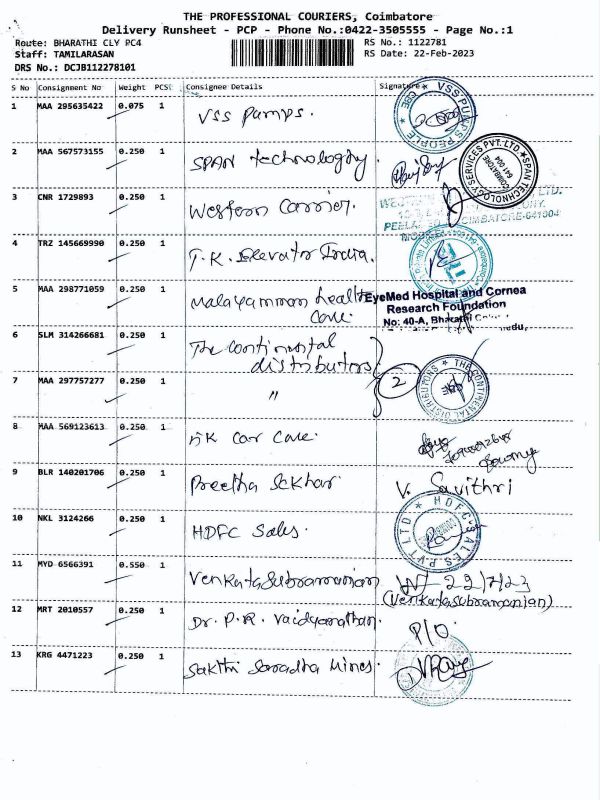 THE PROFESSIONAL COURIERS, Coimbatore
Delivery Runsheet - PCP - Phone No.:0422-3505555 - Page No.:1
Route: BHARATHI CLY PC4
RS No.: 1122781
Staff: TAMILARASAN
RS Date: 22-Feb-2023
DRS No.: DCJB112278101
S No Consignment No Weight PCSE Consignee Details Signature
1 MAA 295635422 0.075 1 VSS Pumps.
VSS PUMPS PEOPLE
2 MAA 567573155 0.250 1 SPAN technology
SPAN TECHNOLOGY SERVICES PVT. LTD
COIMBATORE
641 004
3 CNR 1729893 0.250 1 Western Carrier.
4 TRZ 145669990 0.250 1 T.K. Elevator India.
5 MAA 298771059 0.250 1 Malayamman health
care
EyeMed Hospital and Cornea
Research Foundation
No: 40-A, Bharathi
6 SLM 314266681 0.250 1 The continental
distributors
7 MAA 297757277 0.250 1 "
2
THE CONTINENTAL DISTRIBUTORS
CBE
8 MAA 569123613 0.250 1 AK Car Care.
9 BLR 140201706 0.250 1 Preetha Sekhar
V. Savithri
10 NKL 3124266 0.250 1 HDFC Sales.
HDFC SALES PVT LTD
11 MYD 6566391 0.550 1 Venkatasubramanian
(Venkatasubramanian)
12 MRT 2010557 0.250 1 Dr. P.R. Vaidyanathan.
P/O
13 KRG 4471223 0.250 1 Sakthi Saradha Mines.